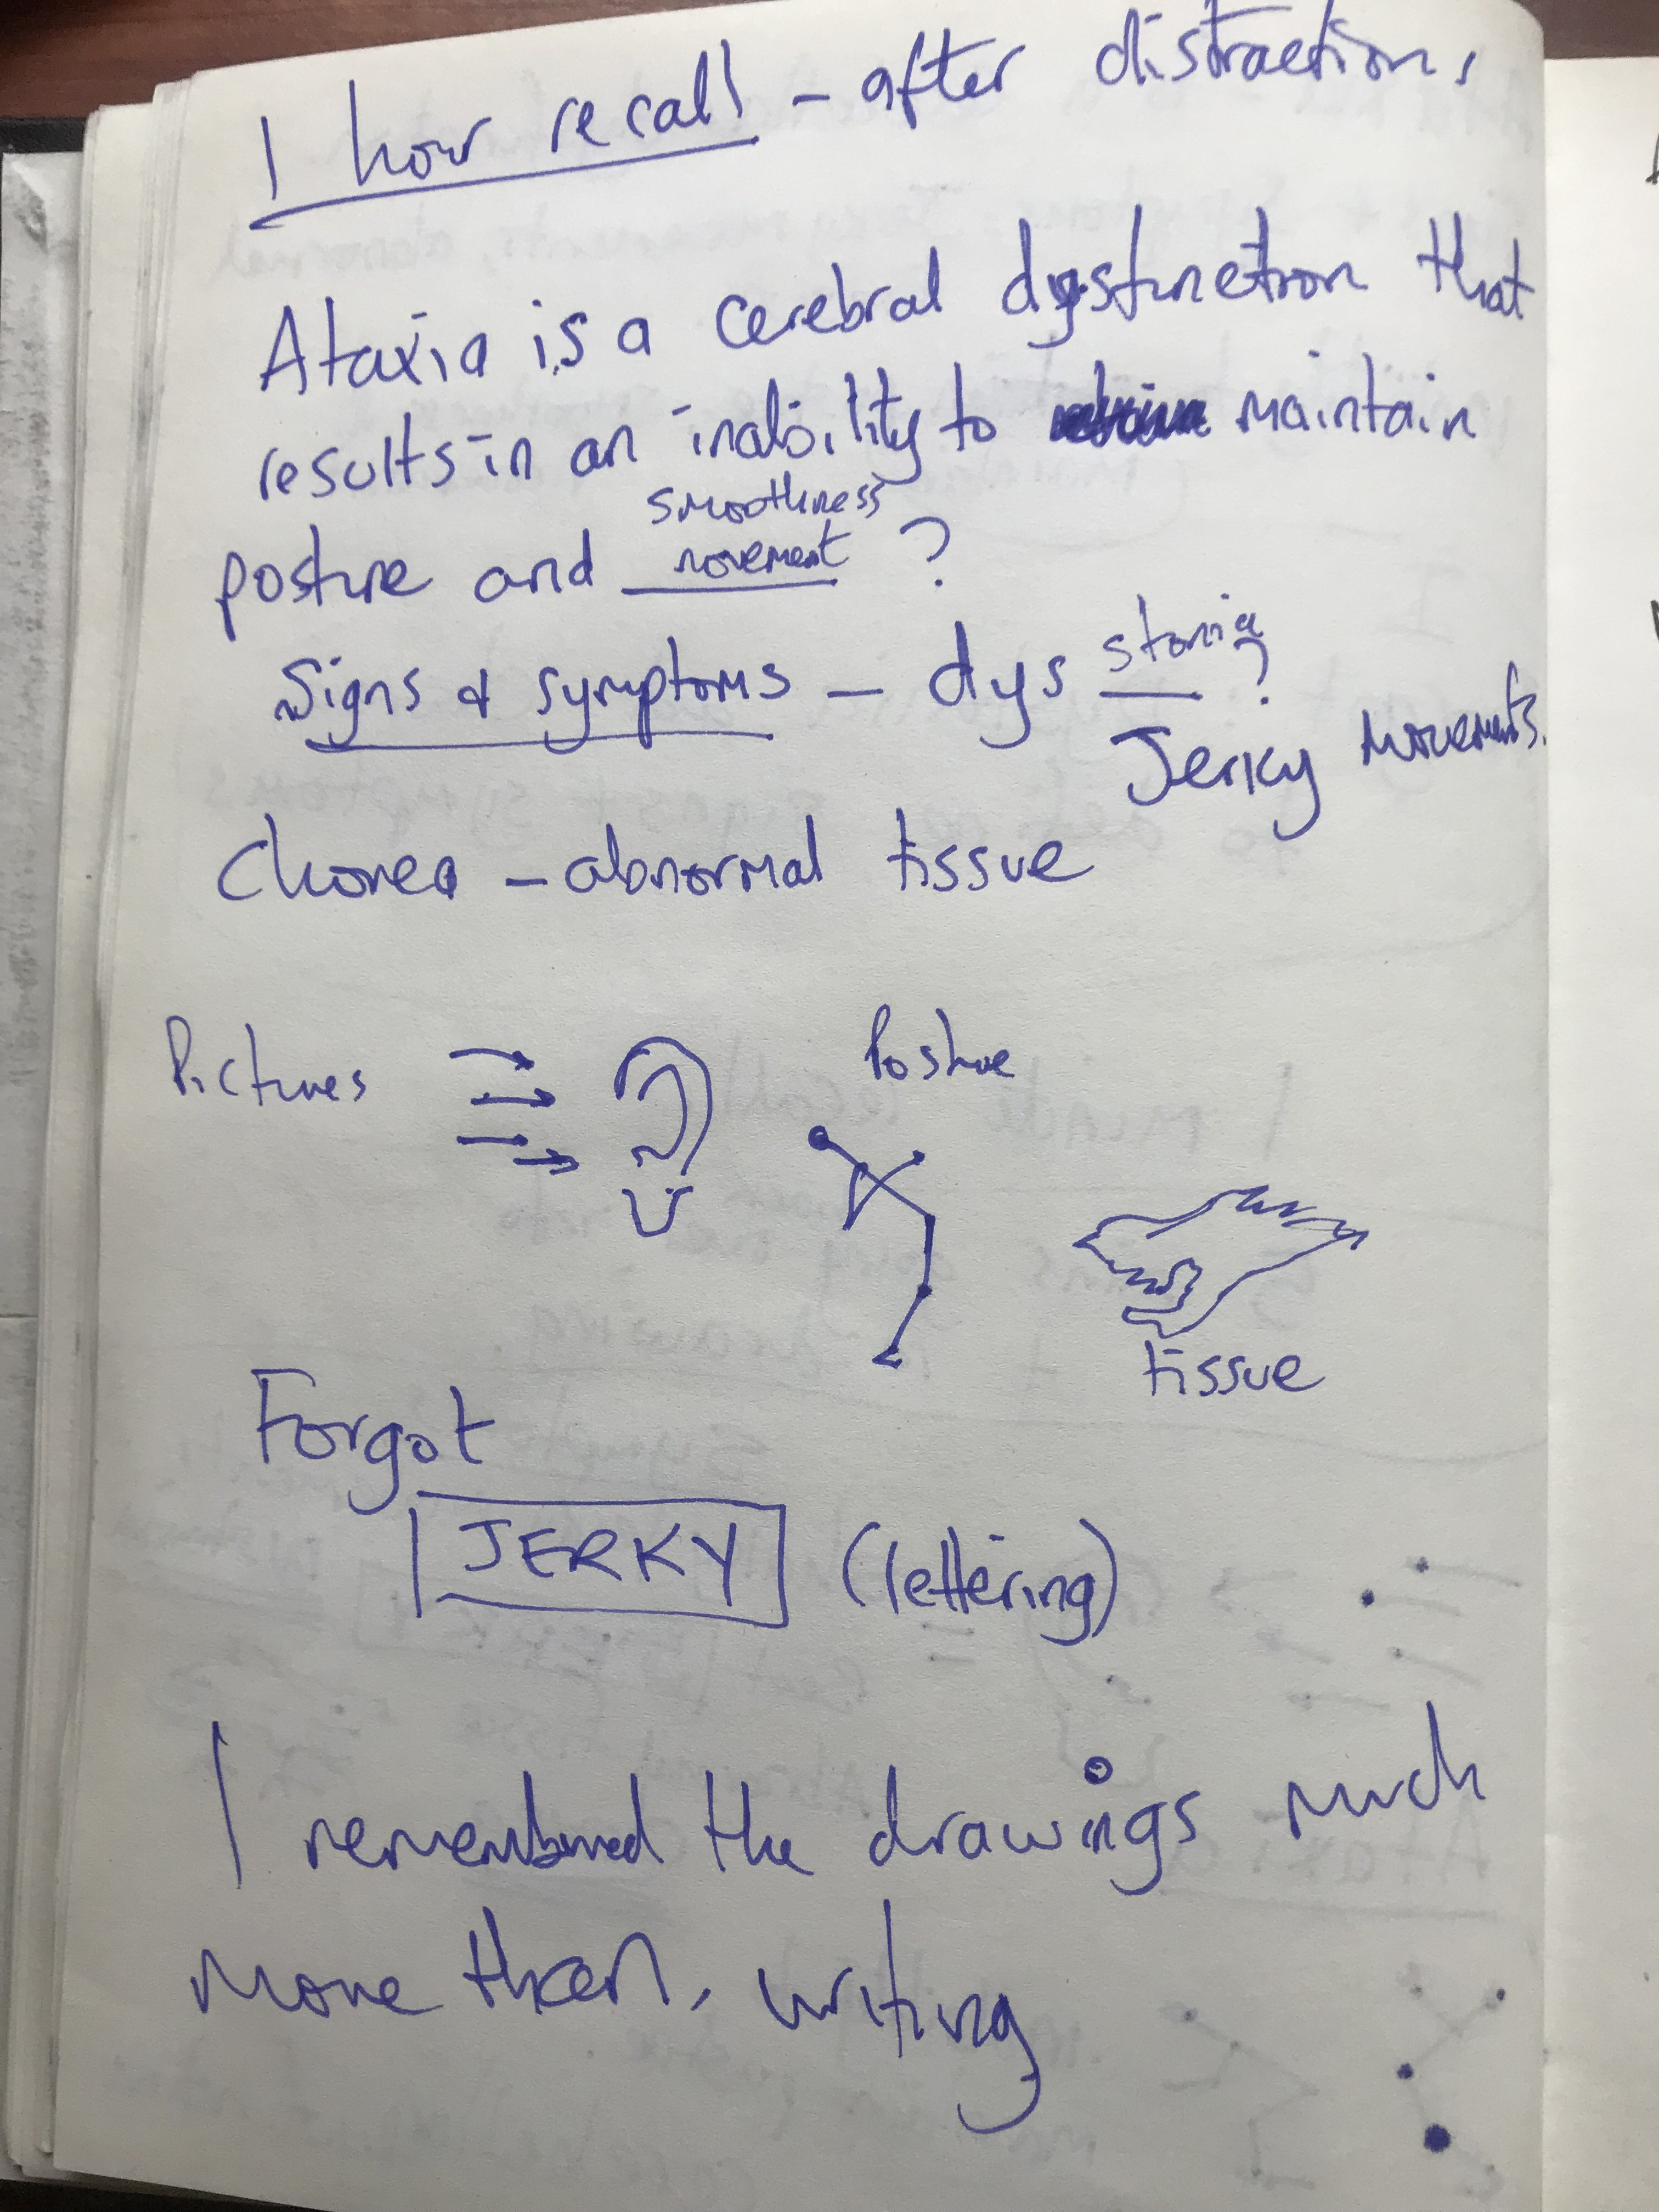 1 hour recall - after distraction.
Ataxia is a cerebral dysfunction that
results in an inability to maintain
smoothness
posture and movement ?
Signs & symptoms - dys stonia ?
Jerky movements.
Chorea - abnormal tissue
Pictures
Posture
tissue
Forgot
JERKY (lettering)
I remembered the drawings much
more then, writing